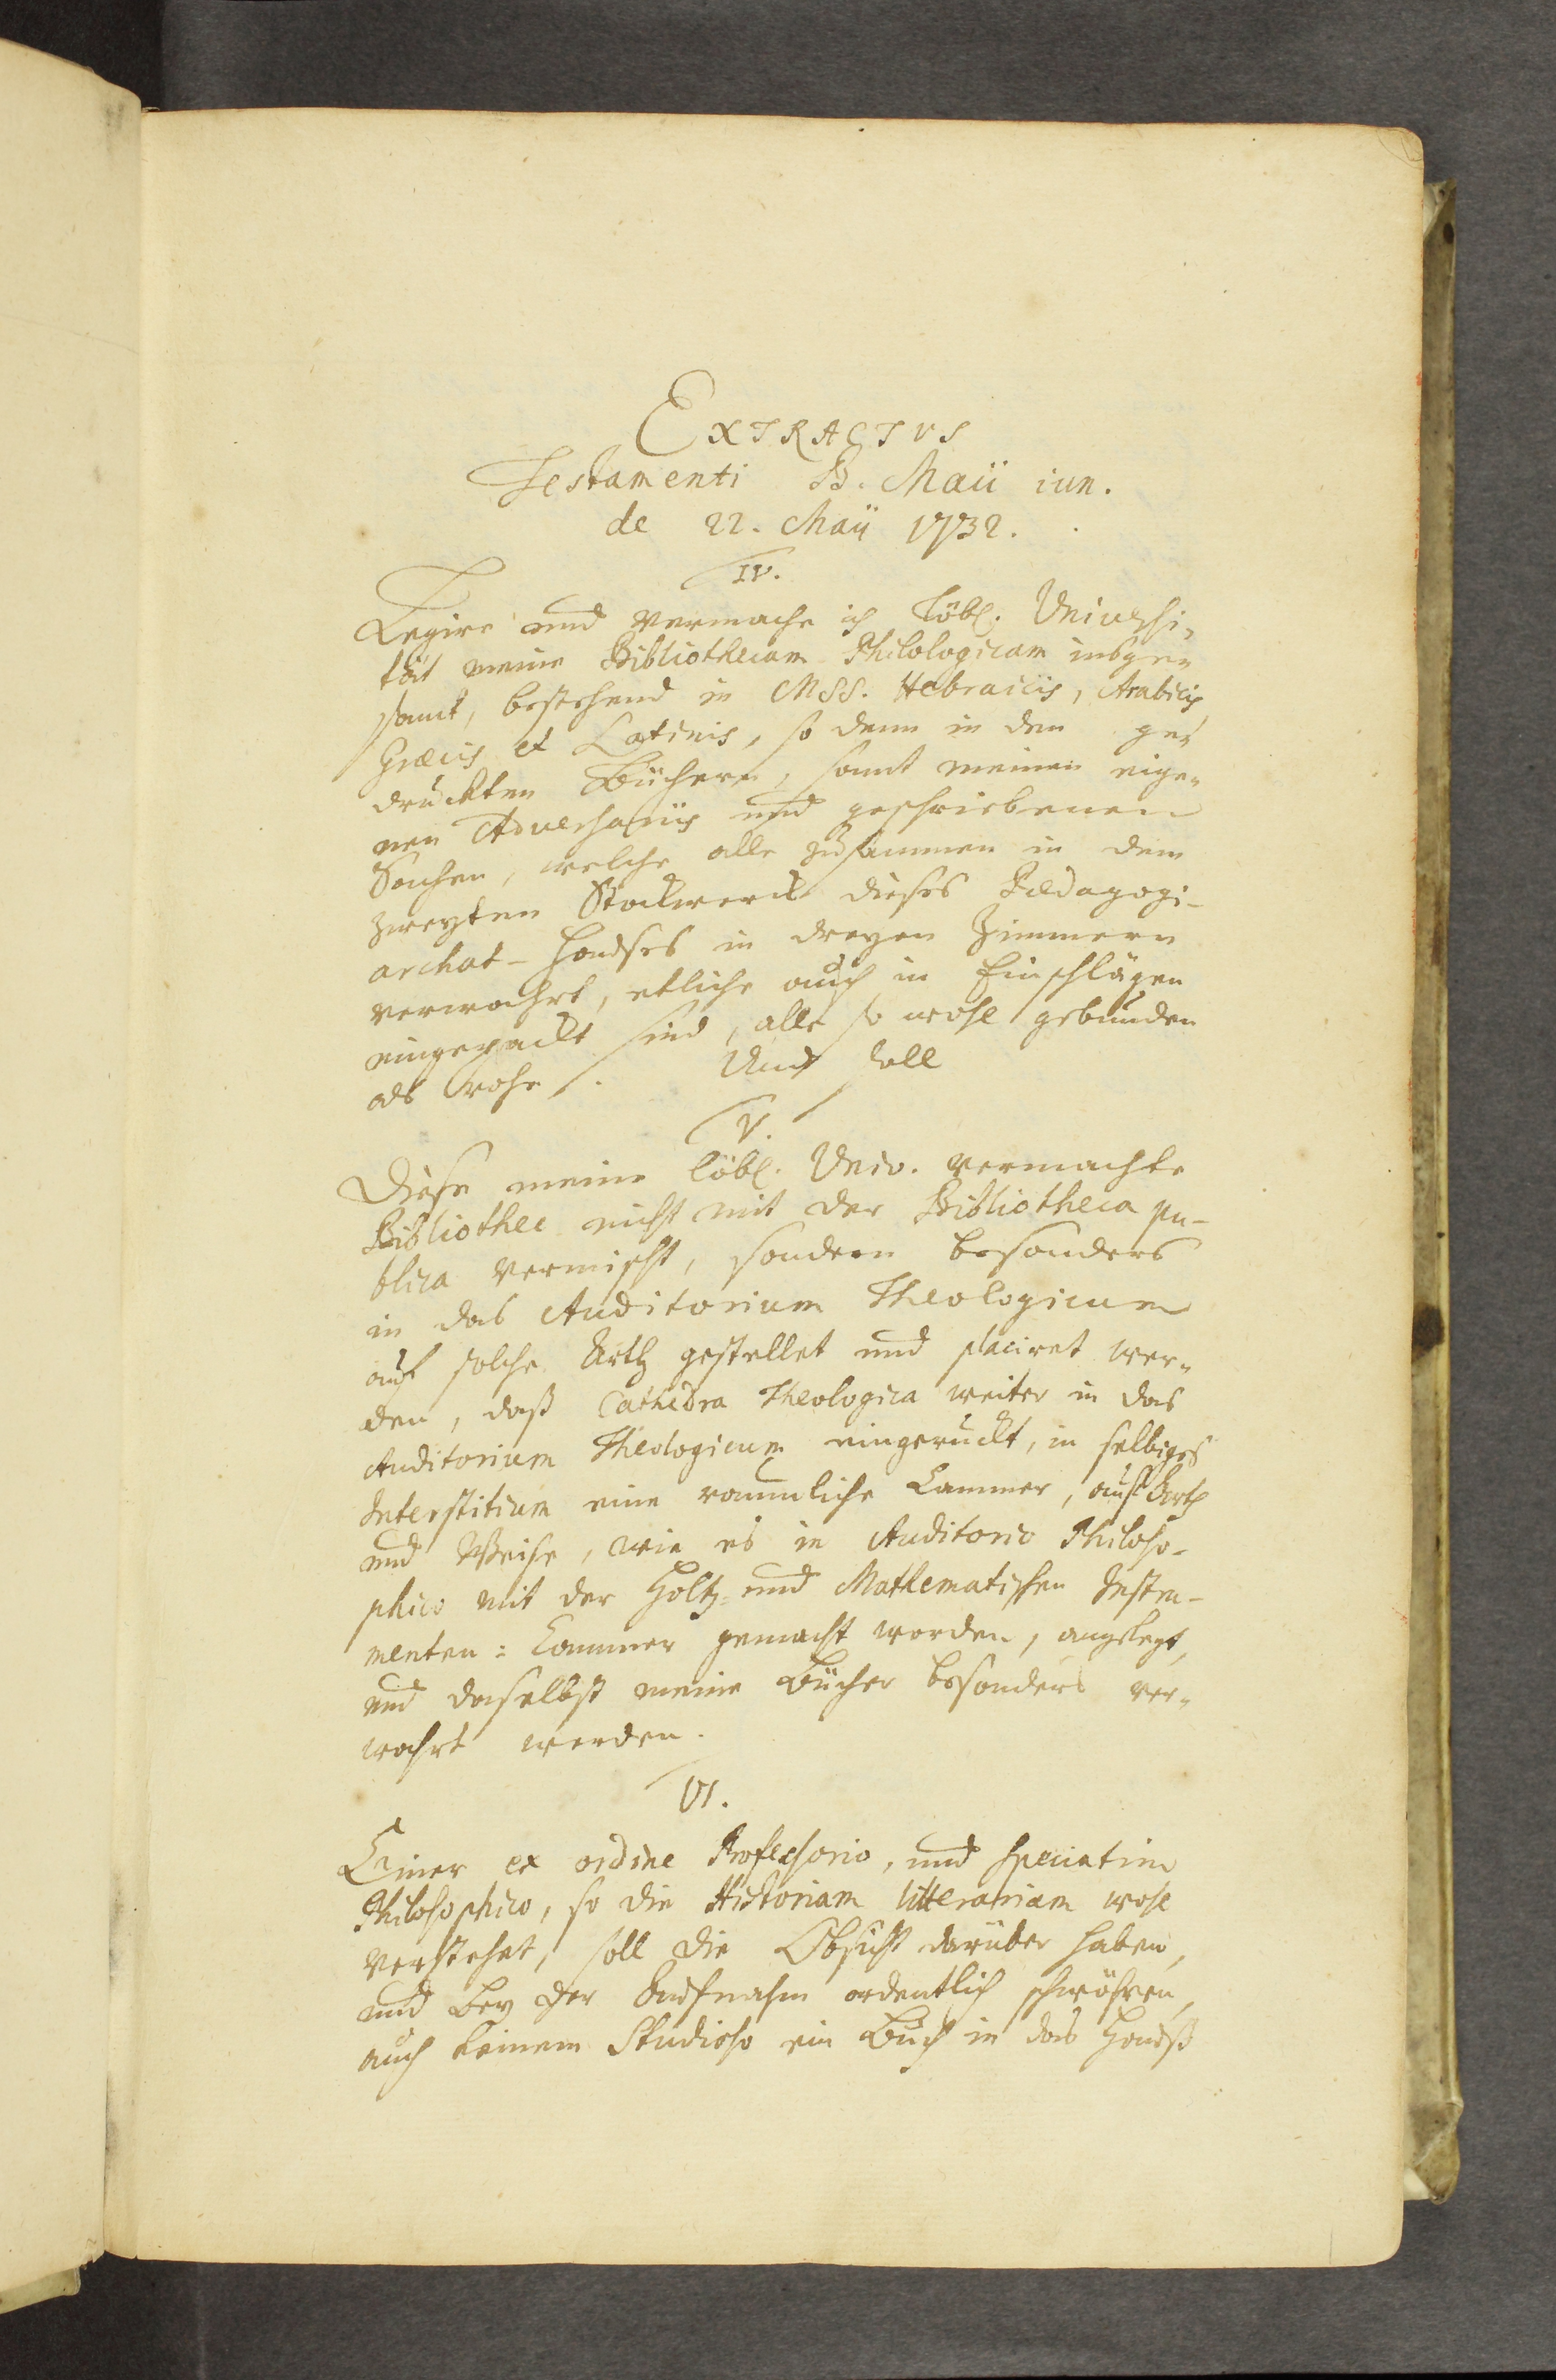 EXTRACTVS
Testamenti B. Maii iun.
de 22. Maii 1732.
IV.
Legire und vermache ich löbl. Universi-
tät meine Bibliothecam Philologicam insge-
samt, bestehend in MSS. Hebraicis, Arabicis,
Græcis et Latinis, so denn in den ge-
druckten Büchern, samt meinen eige-
nen Adversariis und geschriebenen
Sachen, welche alle zusammen in dem
zweyten Stockwerck dieses Pædagogi-
archat-Hauses in dreyen Zimmern
verwahrt, etliche auch in Einschlägen
eingepackt sind, alle so wohl gebunden
als rohe. Und soll
V.
Diese meine löbl. Univ. vermachte
Bibliothec nicht mit der Bibliotheca pu-
blica vermischt, sondern besonders
in das Auditorium Theologicum
auf solche Arth gestellet und placiret wer-
den, daß Cathedra Theologica weiter in das
Auditorium Theologicum eingeruckt, in selbiges
Interstitium eine raumliche Cammer, auf Arth
und Weise, wie es in Auditorio Philoso-
phico mit der Holtz- und Mathematischen Instru-
menten-Cammer gemacht worden, angelegt,
und daselbst meine Bücher besonders ver-
wahrt werden.
VI.
Einer ex ordine Professorio, und speciatim
Philosophico, so die Historiam litterariam wohl
verstehet, soll die Obsicht darüber haben,
und bey der Aufnahm ordentlich schwöhren,
auch keinem Studioso ein Buch in das Hauß